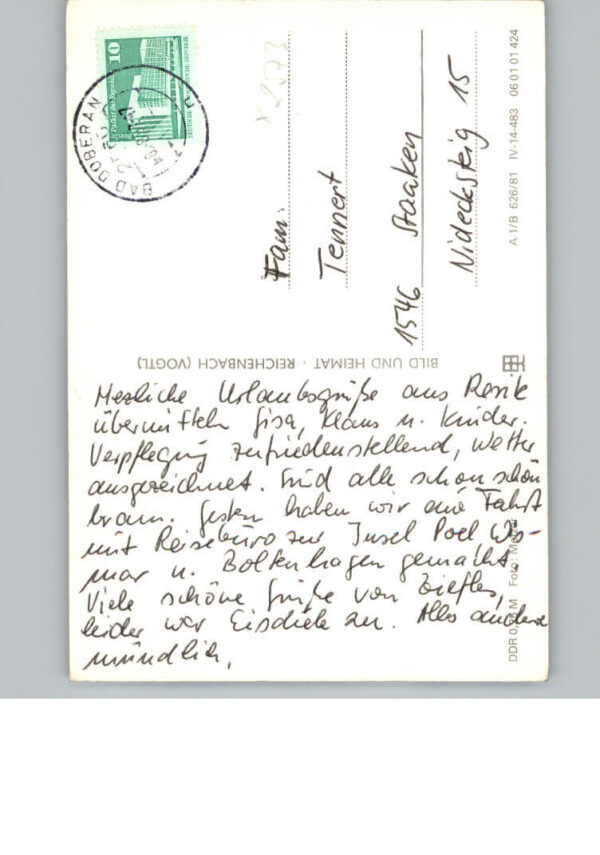 Herzliche Urlaubsgrüße aus Rerik
übermitteln Gisa, Klaus u. Kinder.
Verpflegung zufriedenstellend, Wetter
ausgezeichnet. Sind alle schon schön
braun. Gestern haben wir eine Fahrt
mit Reisebüro zur Insel Poel Wis-
mar u. Boltenhagen gemacht.
Viele schöne Grüße von
leider war Eisdiele zu. Alles andere
mündlich.
Fam.
Tennert
1546 Staaken
Nidecksteig 15
BILD UND HEIMAT · REICHENBACH (VOGTL)
A 1/B 626/81 IV-14-483 06 01 01 424
DDR M Foto:
10
BAD DOBERAN